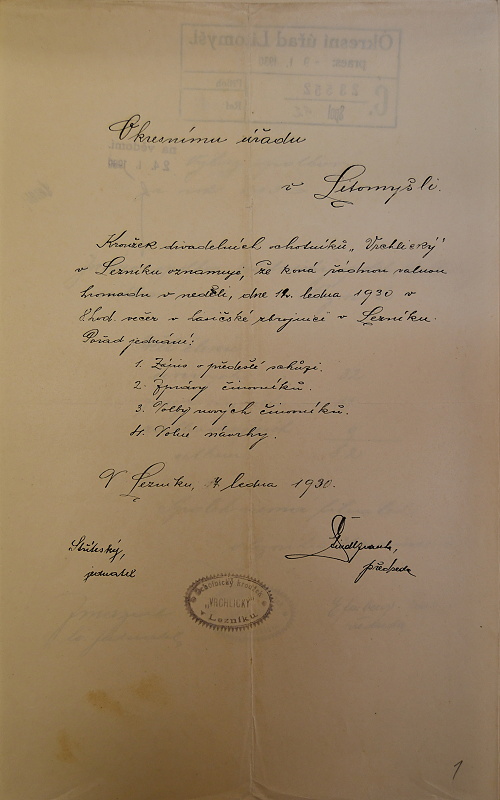 Okresnímu úřadu
v Litomyšli.
Kroužek divadelních ochotníků „Vrchlický"
v Lezníku oznamuje, že koná řádnou valnou
hromadu v neděli, dne 12. ledna 1930 v
8 hod. večer v hasičské zbrojnici v Lezníku.
Pořad jednání:
1. Zápis o předešlé schůzi.
2. Zprávy činovníků.
3. Volby nových činovníků.
4. Volné návrhy.
V Lezníku, 7 ledna 1930.
jednatel
předseda
Ochotnický kroužek
„VRCHLICKÝ"
v Lezníku
1
Okresní úřad Litomyšl.